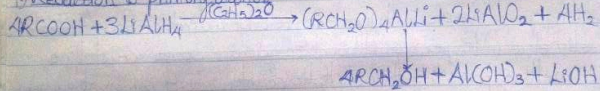 4RCOOH + 3LiAlH₄ (C₂H₅)₂O → (RCH₂O)₄AlLi + 2LiAlO₂ + 4H₂
4RCH₂OH + Al(OH)₃ + LiOH